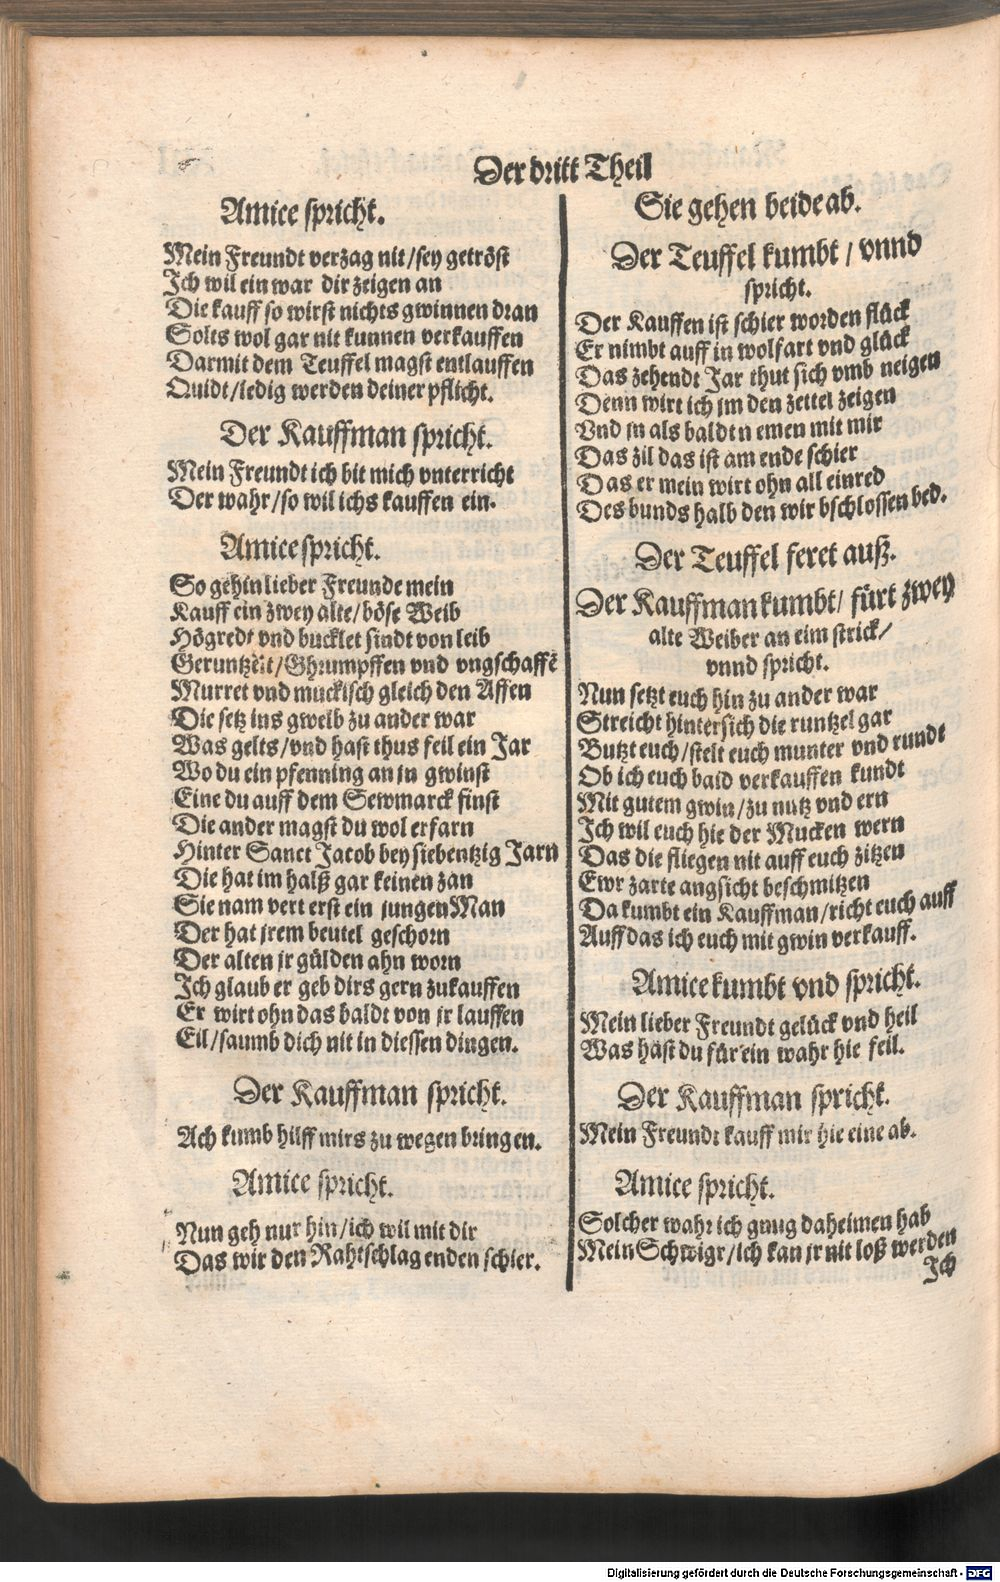 Der dritt Theil
Amice spricht.
Mein Freundt verzag nit/sey getröst
Ich wil ein war dir zeigen an
Die kauff so wirst nichts gwinnen dran
Solts wol gar nit kunnen verkauffen
Darmit dem Teuffel magst entlauffen
Quidt/ledig werden deiner pflicht.
Der Kauffman spricht.
Mein Freundt ich bit mich vnterricht
Der wahr/so wil ichs kauffen ein.
Amice spricht.
So geh in lieber Freunde mein
Kauff ein zwey alte/böse Weib
Högredt vnd bucklet sindt von leib
Geruntzelt/Ghrumpffen vnd vngschaffē
Murret vnd muckisch gleich den Affen
Die setz ins gwelb zu ander war
Was gelts/vnd hast thus feil ein Jar
Wo du ein pfenning an jn gwinst
Eine du auff dem Sewmarck finst
Die ander magst du wol erfarn
Hinter Sanct Jacob bey siebentzig Jarn
Die hat im halß gar keinen zan
Sie nam vert erst ein jungen Man
Der hat jrem beutel geschorn
Der alten jr gülden ahn worn
Ich glaub er geb dirs gern zukauffen
Er wirt ohn das baldt von jr lauffen
Eil/saumb dich nit in diessen dingen.
Der Kauffman spricht.
Ach kumb hilff mirs zu wegen bringen.
Amice spricht.
Nun geh nur hin/ich wil mit dir
Das wir den Rahtschlag enden schier.
Sie gehen beide ab.
Der Teuffel kumbt/ vnnd
spricht.
Der Kauffen ist schier worden flück
Er nimbt auff in wolfart vnd glück
Das zehendt Jar thut sich vmb neigen
Denn wirt ich jm den zettel zeigen
Vnd jn als baldt n emen mit mir
Das zil das ist am ende schier
Das er mein wirt ohn all einred
Des bunds halb den wir bschlossen bed.
Der Teuffel feret auß.
Der Kauffman kumbt/ fürt zwey
alte Weiber an eim strick/
vnnd spricht.
Nun setzt euch hin zu ander war
Streicht hintersich die runtzel gar
Butzt euch/stelt euch munter vnd rundt
Ob ich euch bald verkauffen kundt
Mit gutem gwin/zu nutz vnd ern
Ich wil euch hie der Mucken wern
Das die fliegen nit auff euch zitzen
Ewr zarte angsicht beschmitzen
Da kumbt ein Kauffman/richt euch auff
Auff das ich euch mit gwin verkauff.
Amice kumbt vnd spricht.
Mein lieber Freundt gelück vnd heil
Was hast du für ein wahr hie feil.
Der Kauffman spricht.
Mein Freundt kauff mir hie eine ab.
Amice spricht.
Solcher wahr ich gnug daheimen hab
Mein Schwigr/ich kan jr nit loß werden
Ich
Digitalisierung gefördert durch die Deutsche Forschungsgemeinschaft - DFG